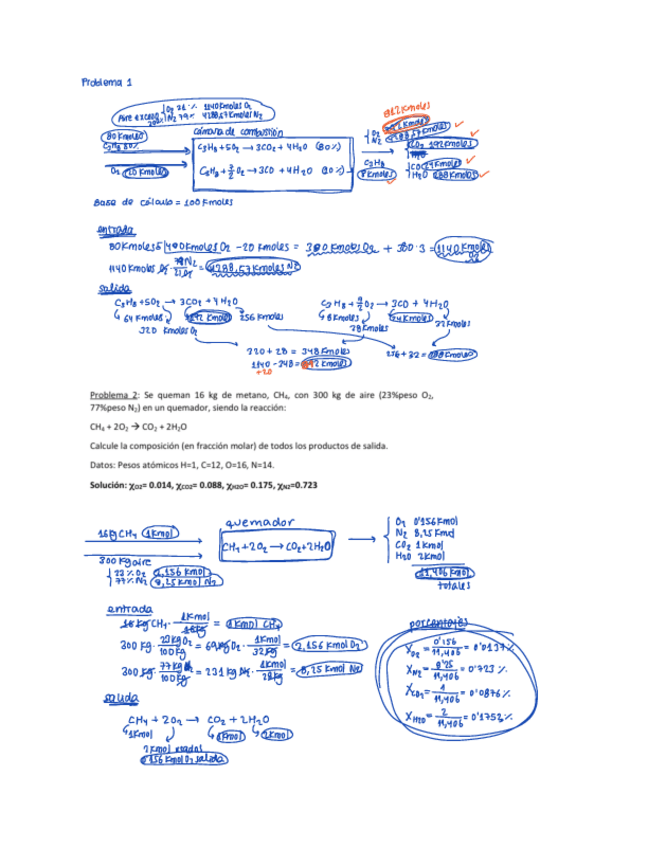 Problema 1
Aire exceso O2 21 % 1140Kmoles O2
200% N2 79% 4288,57Kmoles N2
812Kmoles
80Kmoles
C3H8 80%
cámara de combustión
C3H8 + 5O2 → 3CO2 + 4H2O (80%)
C3H8 + 7/2 O2 → 3CO + 4H2O (20%)
O2 20 Kmoles
O2 792Kmoles
N2 4288,57Kmoles
CO2 192Kmoles
C3H8 8Kmoles
CO 24Kmoles
H2O 288Kmoles
Base de cálculo = 100Kmoles
entrada
80Kmoles·5 400Kmoles O2 - 20 Kmoles = 380 Kmoles O2 + 380·3 = 1140Kmoles O2
1140 Kmoles O2 · 79N2/21O2 = 4288,57Kmoles N2
salida
C3H8 + 5O2 → 3CO2 + 4H2O
64 Kmoles 192 Kmoles 256 Kmoles
320 Kmoles O2
C3H8 + 7/2 O2 → 3CO + 4H2O
8Kmoles 24Kmoles 32Kmoles
28Kmoles
320 + 28 = 348 Kmoles
1140 - 348 = 792 Kmoles
+20
256 + 32 = 288Kmoles
Problema 2: Se queman 16 kg de metano, CH₄, con 300 kg de aire (23%peso O₂,
77%peso N₂) en un quemador, siendo la reacción:
CH₄ + 2O₂ → CO₂ + 2H₂O
Calcule la composición (en fracción molar) de todos los productos de salida.
Datos: Pesos atómicos H=1, C=12, O=16, N=14.
Solución: χO2= 0.014, χCO2= 0.088, χH2O= 0.175, χN2=0.723
16Kg CH4 1Kmol
300 Kg aire
23% O2 2,156 Kmol
77% N2 8,25 Kmol N2
quemador
CH4 + 2O2 → CO2 + 2H2O
O2 0'156Kmol
N2 8,25 Kmol
CO2 1Kmol
H2O 2Kmol
11,406 Kmol
totales
entrada
16 Kg CH4 · 1Kmol/16Kg = 1Kmol CH4
300 Kg · 23KgO2/100Kg = 69KgO2 · 1Kmol/32Kg = 2,156 Kmol O2
300 Kg · 77Kg N2/100Kg = 231 Kg N2 · 1Kmol/28Kg = 8,25 Kmol N2
salida
CH4 + 2O2 → CO2 + 2H2O
1Kmol 1Kmol 2Kmol
2Kmol usados
0'156 Kmol O2 salida
porcentajes
XO2 = 0'156/11,406 = 0'0137%
XN2 = 8'25/11,406 = 0'723 %
XCO2 = 1/11,406 = 0'0876%
XH2O = 2/11,406 = 0'1753%